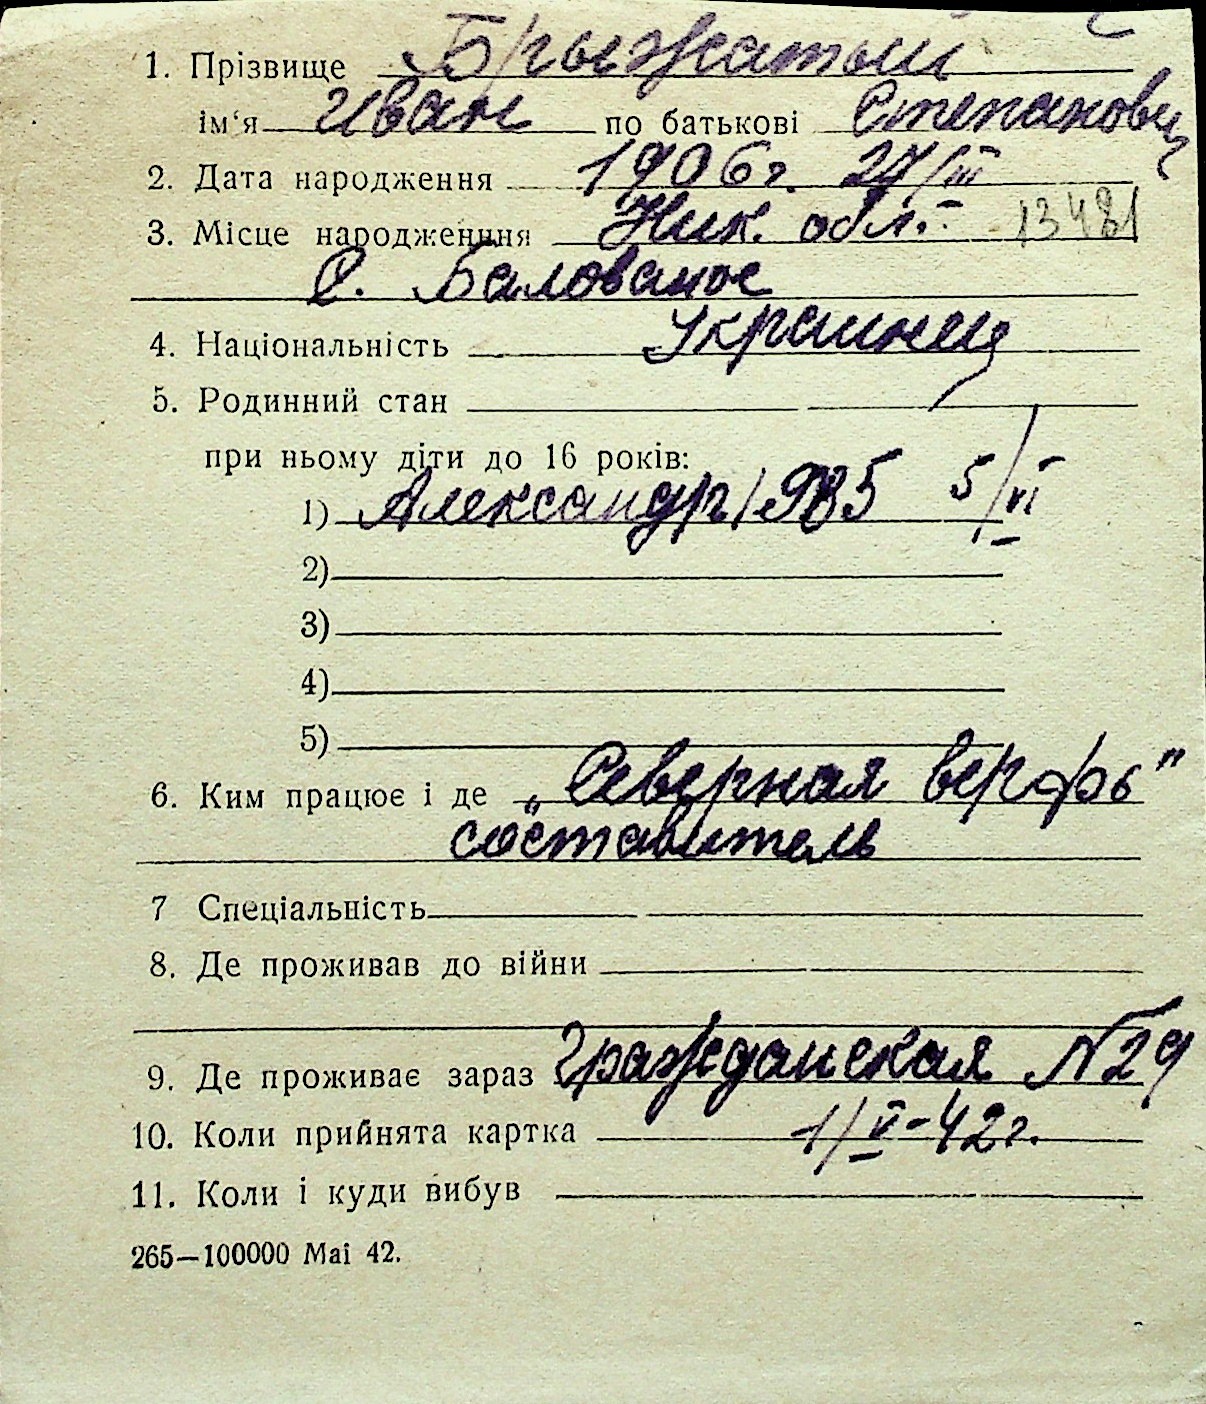 1. Прізвище Брыжатый
ім'я Иван по батькові Степанович
2. Дата народження 1906г. 27/III
3. Місце народженння Ник. обл. 13481
С. Балованое
4. Національність Украинец
5. Родинний стан
при ньому діти до 16 років:
1) Александр 1935 5/VI
2)
3)
4)
5)
6. Ким працює і де „Северная верфь"
составитель
7 Спеціальність
8. Де проживав до війни
9. Де проживає зараз Гражданская №29
10. Коли прийнята картка 1/V-42г.
11. Коли і куди вибув
265—100000 Mai 42.